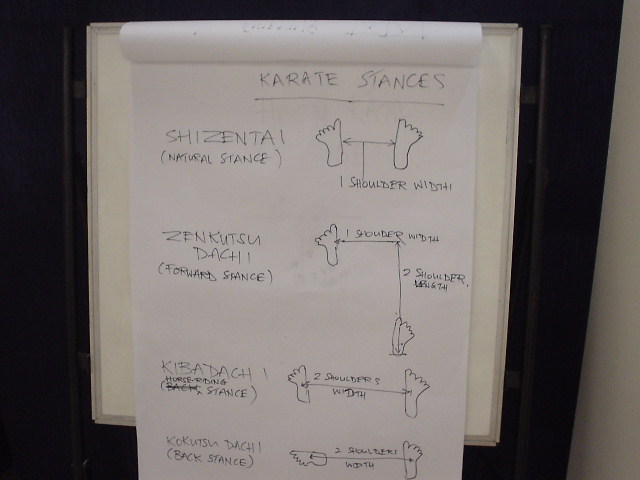 KARATE STANCES
SHIZENTAI
(NATURAL STANCE)
1 SHOULDER WIDTH
ZENKUTSU
DACHI
(FORWARD STANCE)
1 SHOUDER WIDTH
2 SHOULDER
LENGTH
KIBADACHI
HORSE-RIDING
(BACK STANCE)
2 SHOULDERS
WIDTH
KOKUTSU DACHI
(BACK STANCE)
2 SHOULDERS
WIDTH